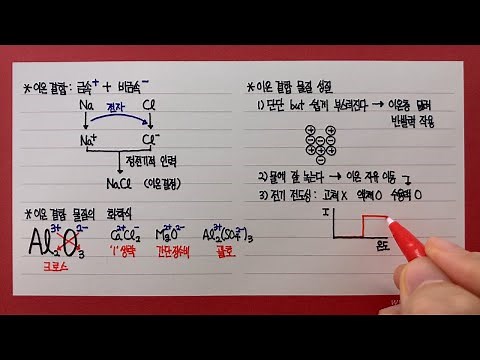 * 이온 결합 : 금속⁺ + 비금속⁻
Na 전자 Cl
Na⁺ Cl⁻
정전기적 인력
NaCl (이온결정)
* 이온 결합 물질의 화학식
Al₂³⁺O₃²⁻ Ca²⁺Cl₂⁻ Mg²⁺O²⁻ Al₂³⁺(SO₄²⁻)₃
크로스 '1'생략 간단정수비 괄호
* 이온 결합 물질 성질
1) 단단 but 쉽게 부스러진다 → 이온층 밀려
반발력 작용
⊕ ⊖ ⊕
⊖ ⊕ ⊖
⊕ ⊖ ⊕
⊖
2) 물에 잘 녹는다 → 이온 자유 이동
3) 전기 전도성 : 고체 X 액체 O 수용액 O
I
온도